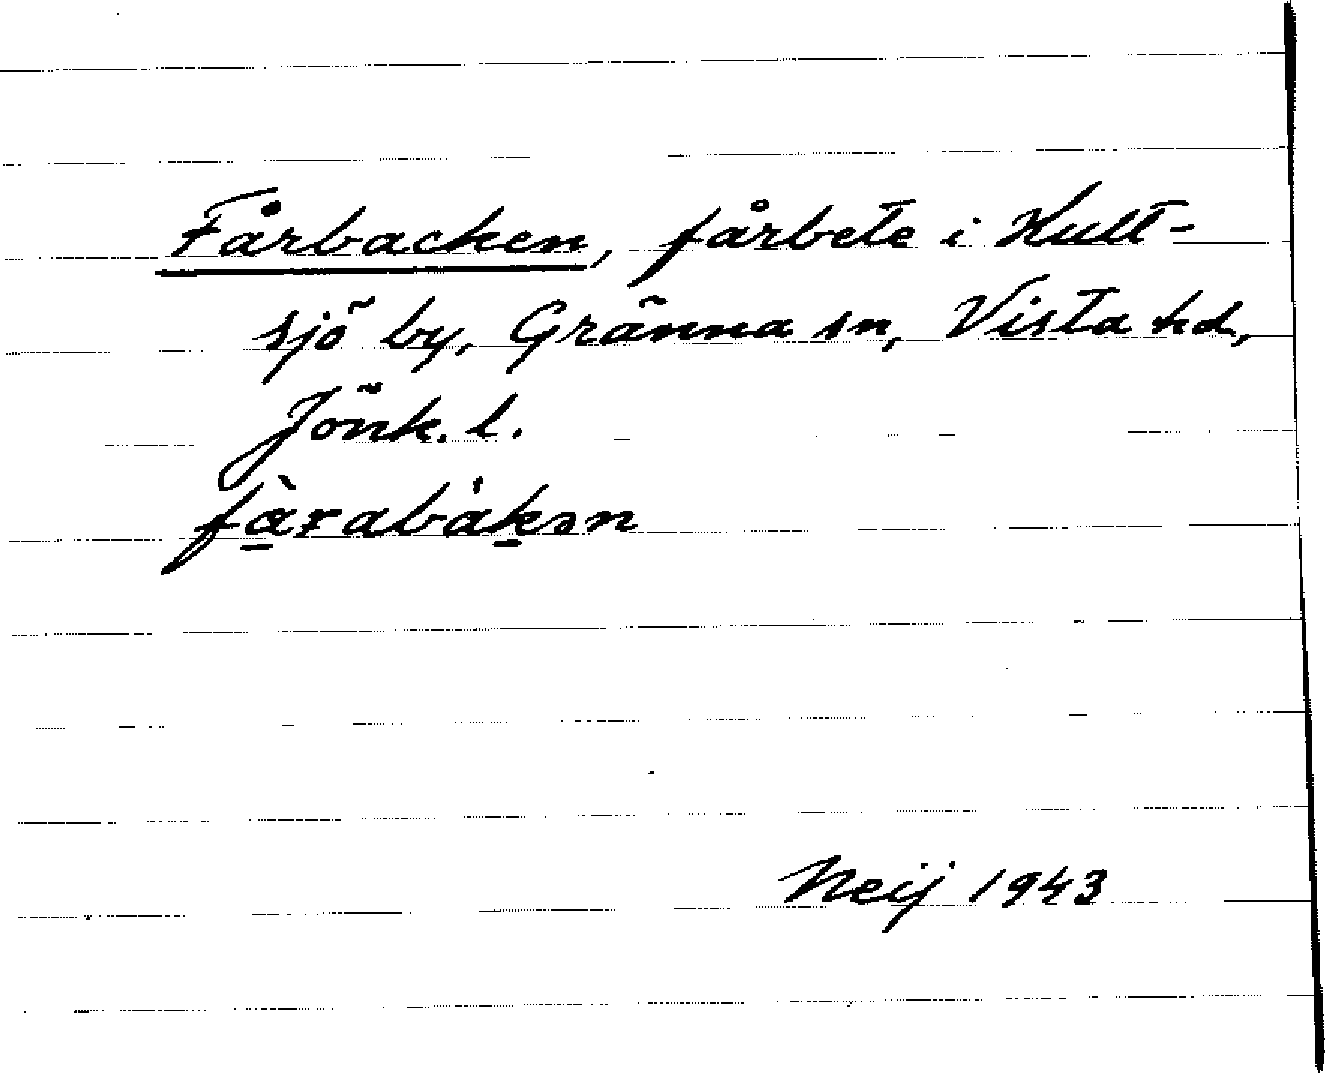 Fårbacken, fårbete i Hult-
sjö by, Gränna sn, Vista hd,
Jönk. l.
Neij 1943